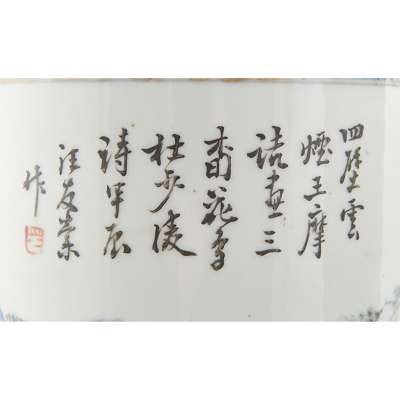 四壁雲
煙王摩
詰畫三
花鳥
杜少陵
詩甲辰
汪友棠
作